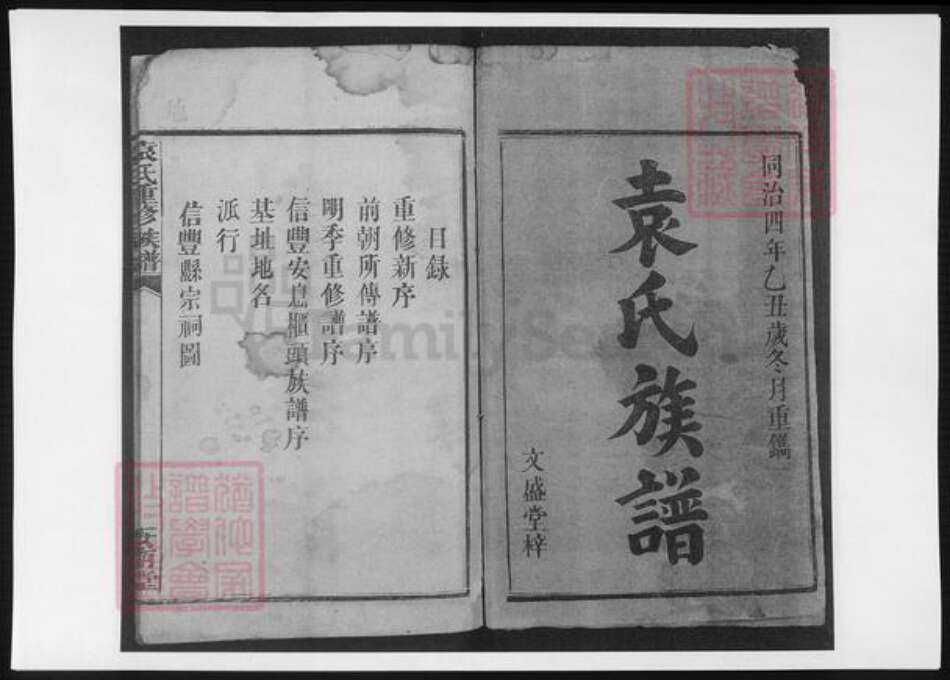 同治四年乙丑歲冬月重鐫
袁氏族譜
文盛堂梓
目録
重修新序
前朝所傳譜序
明季重修譜序
信豐安息順頭族譜序
基址地名
派行
信豐縣宗祠圖
袁氏重修族譜
FamilySearch
譜學會